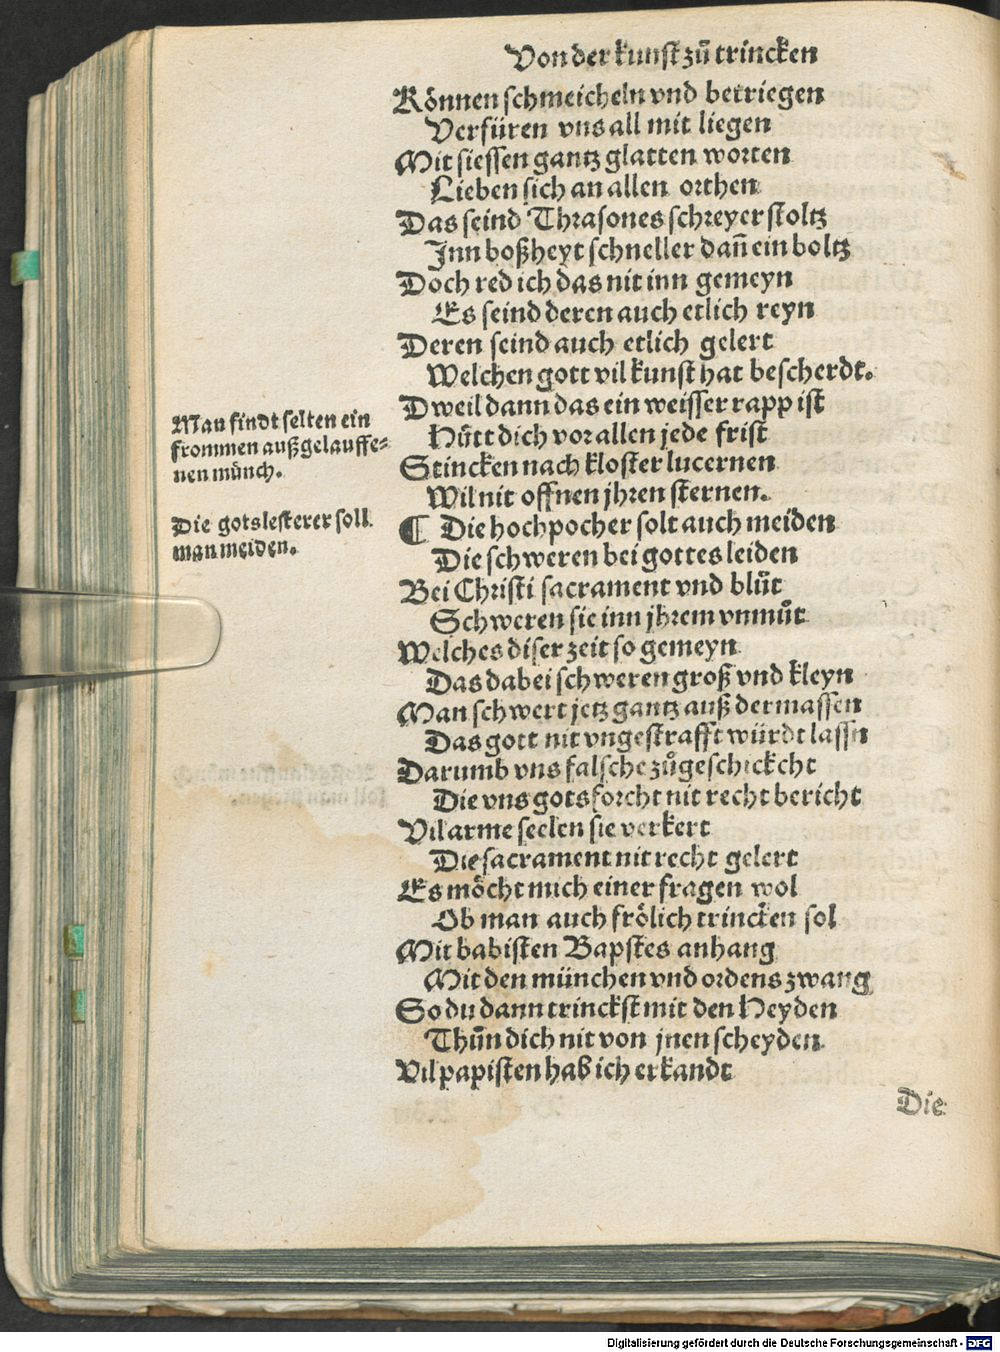 Von der kunst zů trincken
Können schmeicheln vnd betriegen
Verfüren vns all mit liegen
Mit siessen gantz glatten worten
Lieben sich an allen orthen
Das seind Thrasones schreyer stoltz
Inn boßheyt schneller dañ ein boltz
Doch red ich das nit inn gemeyn
Es seind deren auch etlich reyn
Deren seind auch etlich gelert
Welchen gott vil kunst hat bescherdt.
Dweil dann das ein weisser rapp ist
Hůtt dich vor allen jede frist
Stincken nach kloster lucernen
Wil nit offnen jhren sternen.
Man findt selten ein
frommen außgelauffe⸗
nen münch.
¶ Die hochpocher solt auch meiden
Die schweren bei gottes leiden
Die gotslesterer soll
man meiden.
Bei Christi sacrament vnd blůt
Schweren sie inn jhrem vnmůt
Welches diser zeit so gemeyn
Das dabei schweren groß vnd kleyn
Man schwert jetz gantz auß dermassen
Das gott nit vngestrafft würdt lassn
Darumb vns falsche zůgeschickcht
Die vns gots forcht nit recht bericht
Vil arme seelen sie verkert
Die sacrament nit recht gelert
Es möcht mich einer fragen wol
Ob man auch frölich trincken sol
Mit babisten Bapstes anhang
Mit den münchen vnd ordens zwang
So du dann trinckst mit den Heyden
Thůn dich nit von jnen scheyden
Vil papisten hab ich erkandt
Die
Digitalisierung gefördert durch die Deutsche Forschungsgemeinschaft - DFG